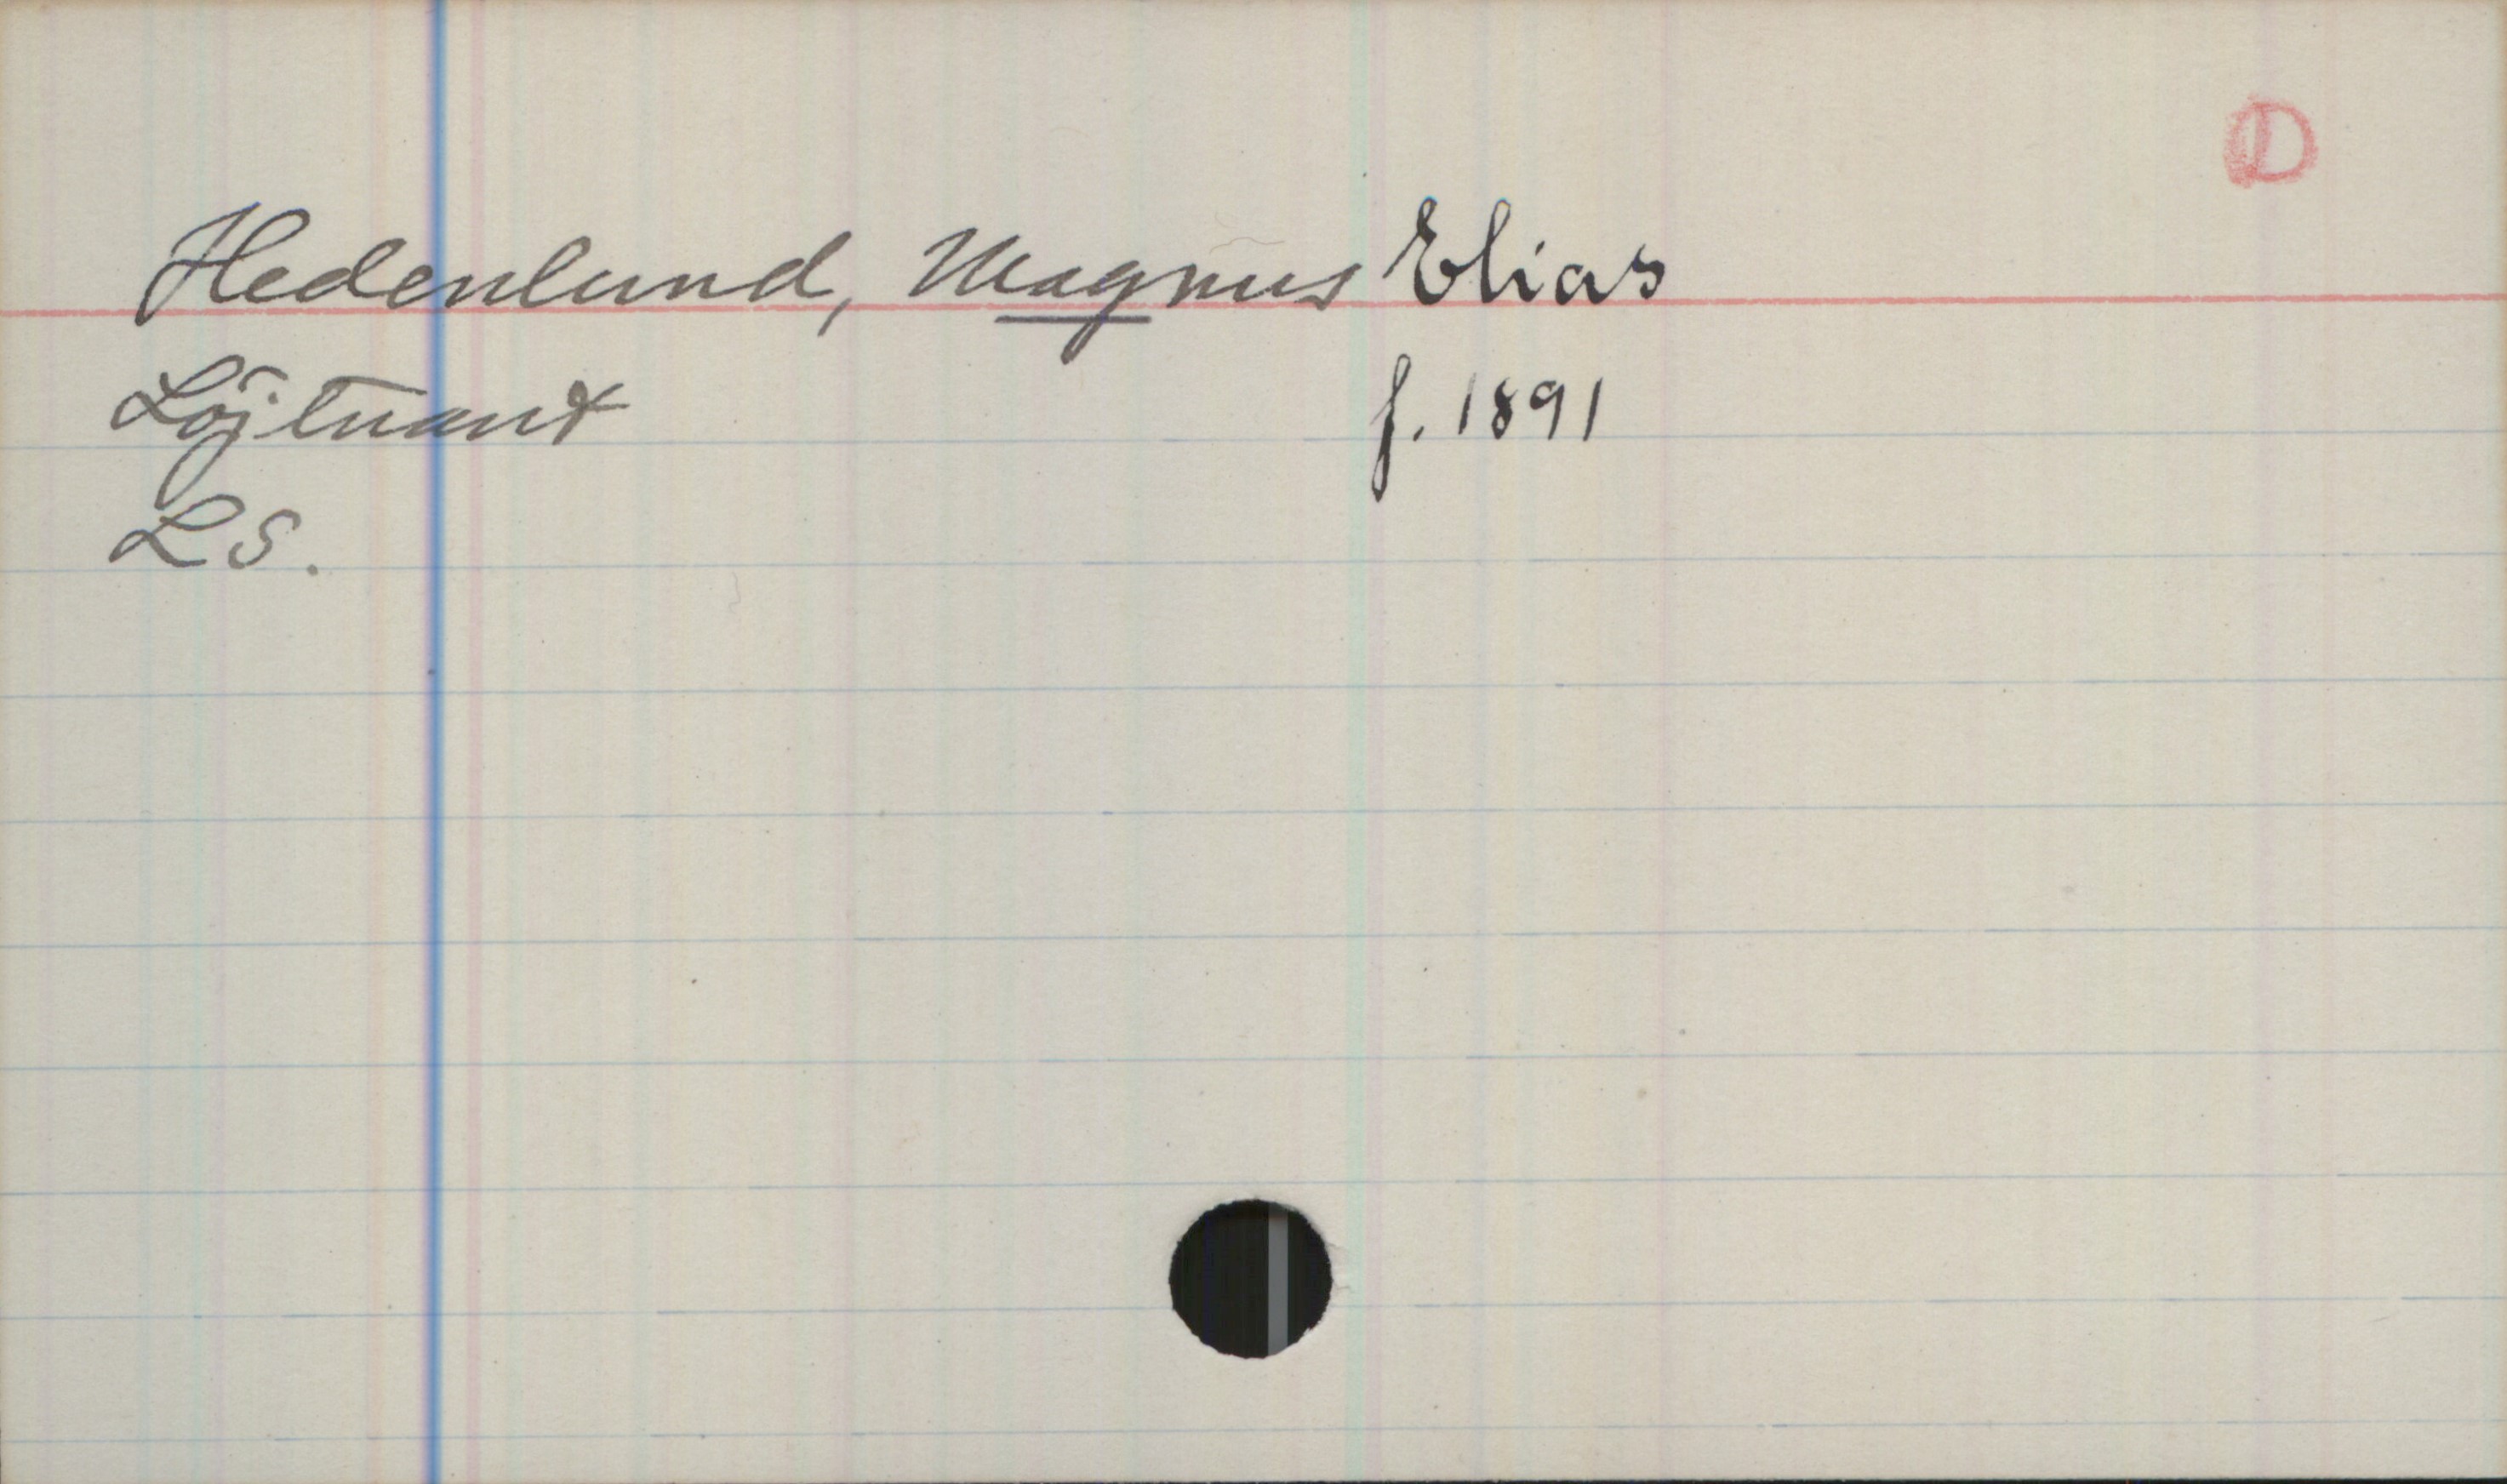 D
Hedenlund, Magnus Elias
Löjtnant f. 1891
LS.